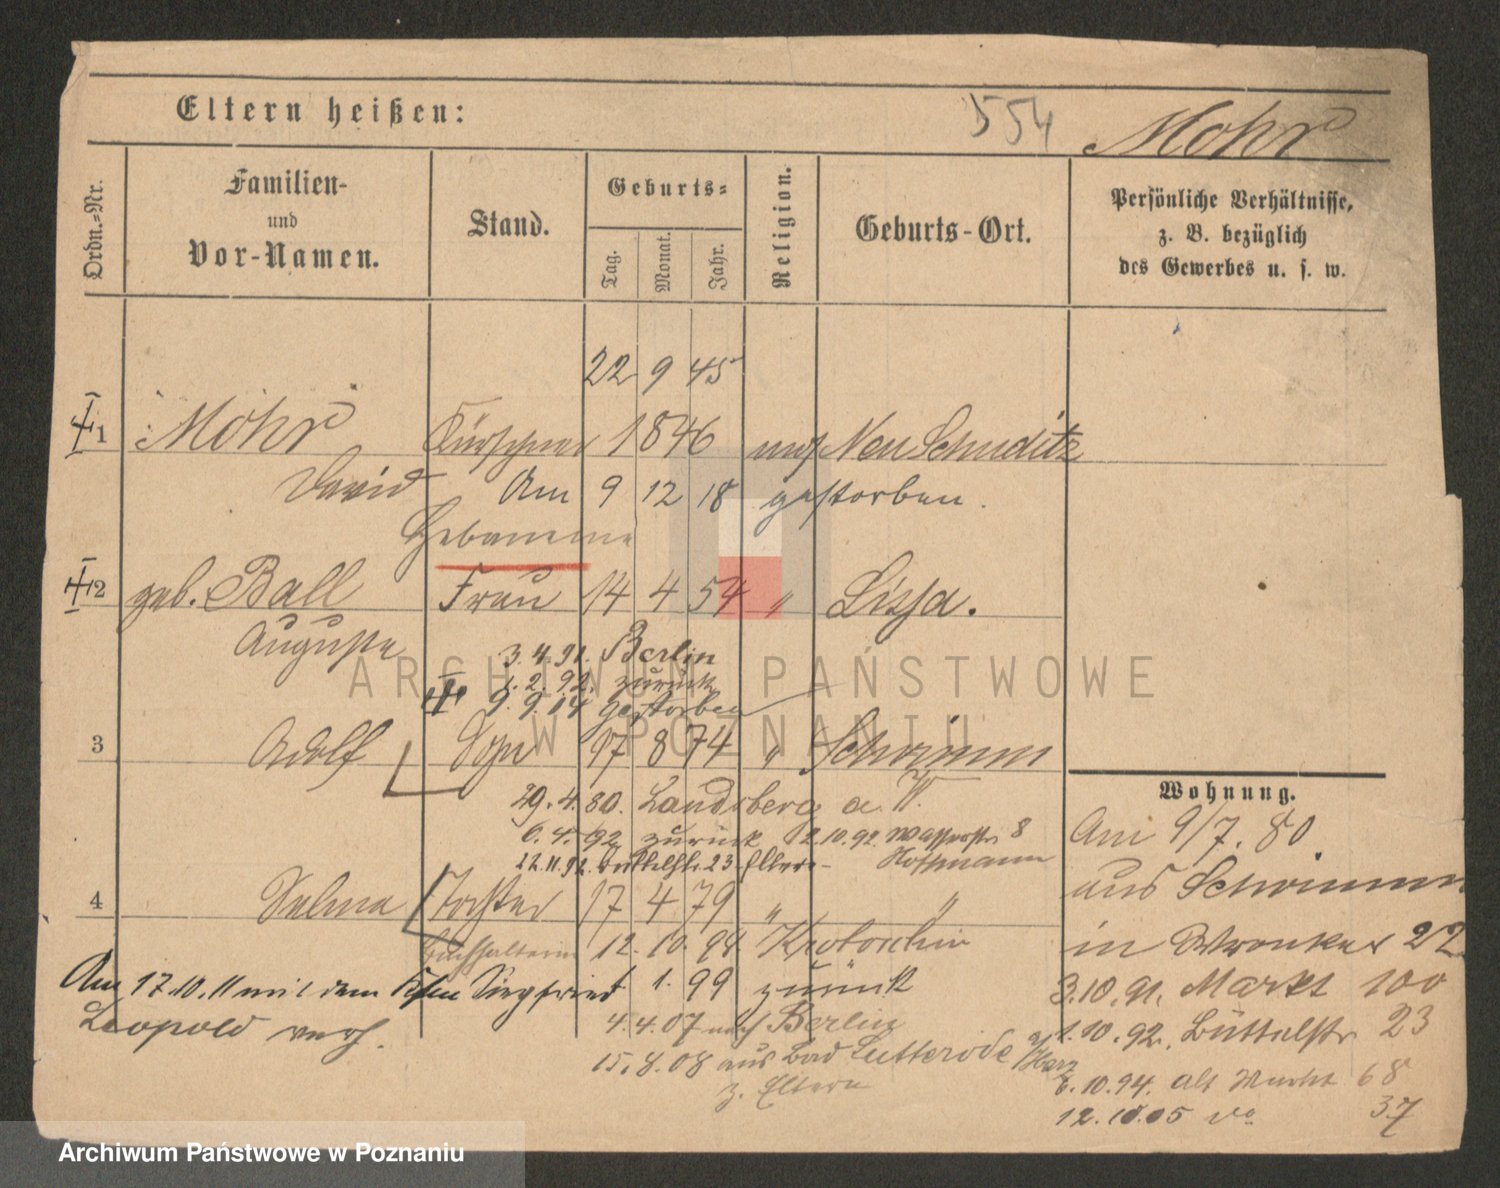 Eltern heißen:
554 Mohr
Ordn.-Nr.
Familien-
und
Vor-Namen.
Stand.
Geburts-
Tag.
Monat.
Jahr.
Religion.
Geburts-Ort.
Persönliche Verhältnisse,
z. B. bezüglich
des Gewerbes u. s. w.
22 9 45
1 Mohr Kürschner 1846 mos Neu Schuditz
David Am 9 12 18 gestorben.
Hebamme
2 geb. Ball Frau 14 4 54 " Lissa.
Auguste
3.4.91. Berlin
1.2.92. zurück
9.9.14 gestorben
3 Adolf Sohn 17 8 74 " Schwimm
29.4.80. Landsberg a. W.
6.4.92 zurück 2.10.92 Wasserstr 8
22.11.92. Büttelstr. 23 Eltern - Hoffmann
4 Selma Tochter 17 4 79 " "
Buchhalterin 12.10.98 Krotoschin
Am 17.10.11 mit dem Kfm Siegfried 1. 1. 99 zurück
Leopold verh.
4.4.07 nach Berlin
15.8.08 aus Bad Lutterode a/Harz
z. Eltern
Wohnung.
Am 9/7. 80.
aus Schwimm
in Wronker 22
3.10.91. Markt 100
1.10.92. Büttelstr 23
6.10.94. Alt Markt 68
12.10.05 do 37
ARCHIWUM PAŃSTWOWE
W POZNANIU
Archiwum Państwowe w Poznaniu